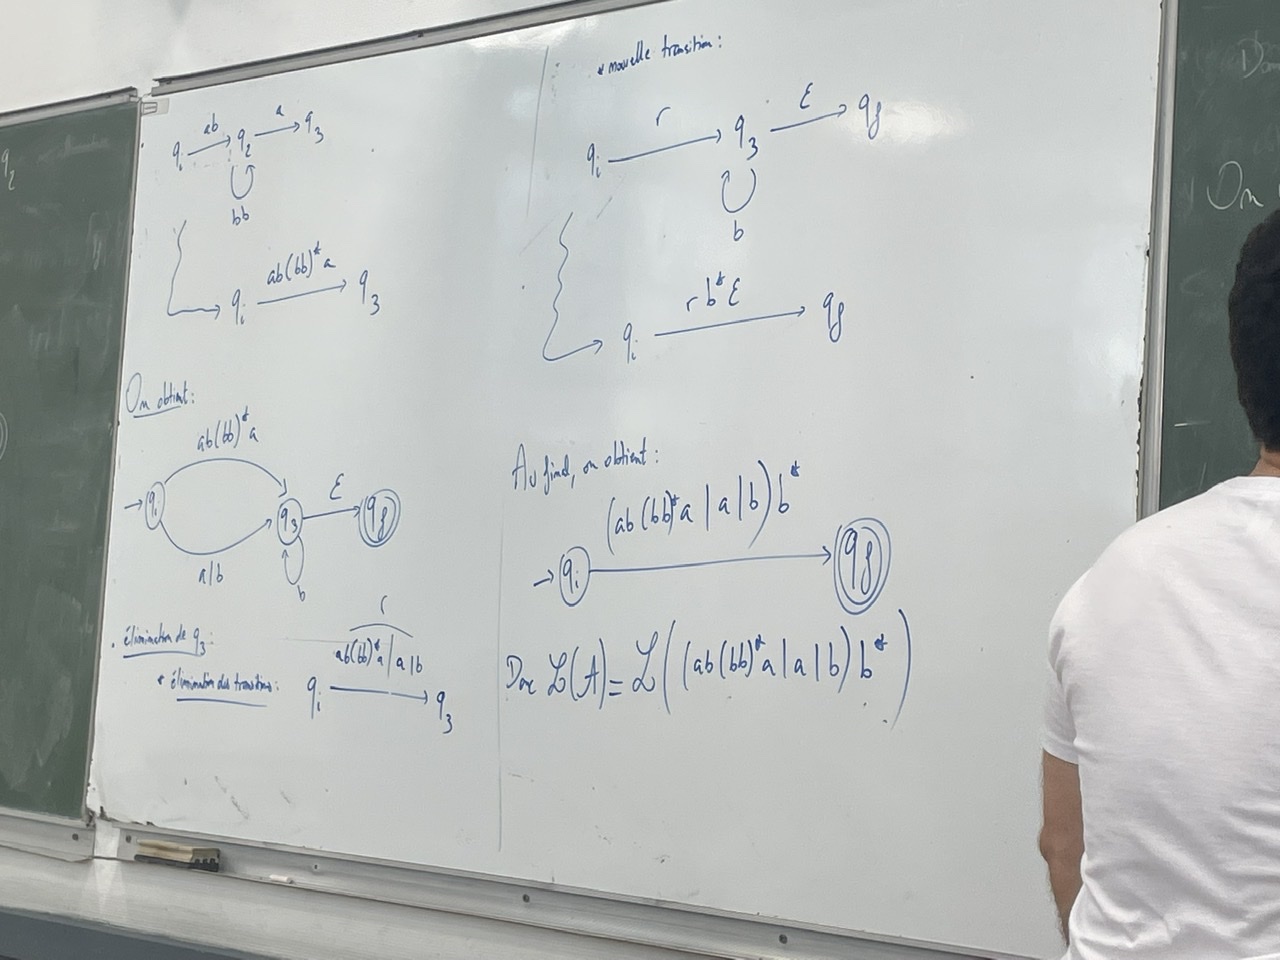 q₂
ab a
qᵢ → q₂ → q₃
bb
ab(bb)*a
qᵢ → q₃
On obtient :
ab(bb)*a
→ qᵢ q₃ ε → qf
a|b
b
. élimination de q₃ :
* élimination des transitions :
r
ab(bb)*a | a | b
qᵢ → q₃
* nouvelle transition :
r ε
qᵢ → q₃ → qf
b
r b* ε
qᵢ → qf
Au final, on obtient :
(ab(bb)*a | a | b) b*
→ qᵢ → qf
Donc ℒ(A) = ℒ((ab(bb)*a | a | b) b*)
On